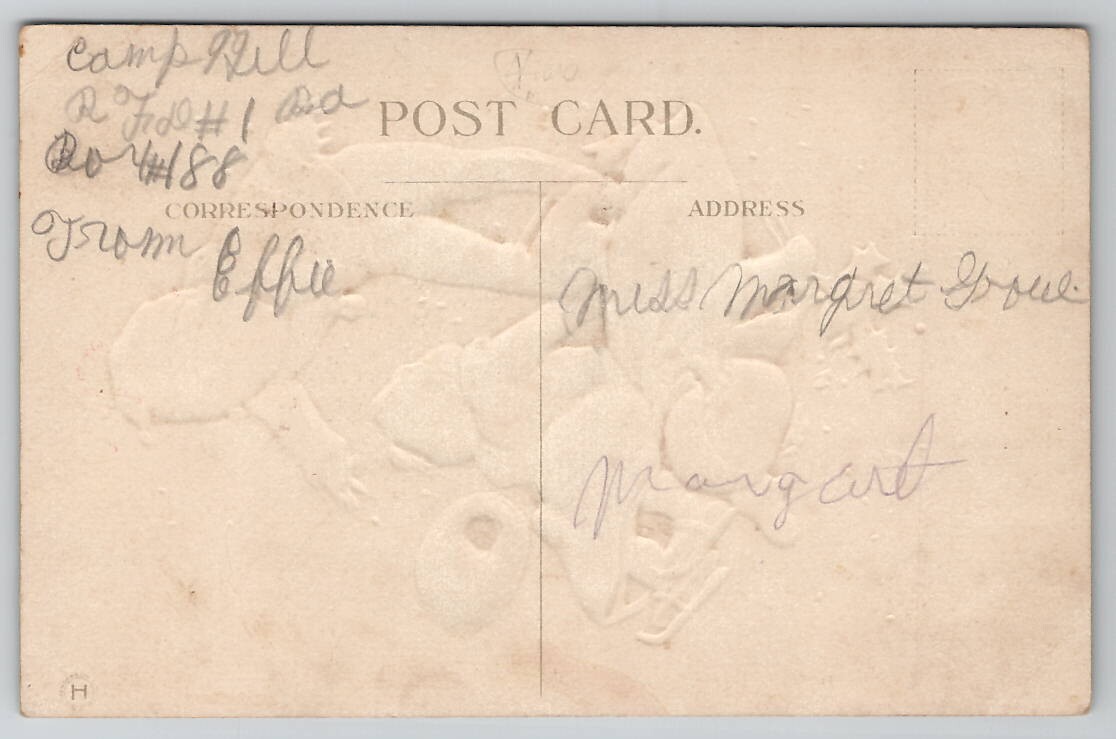 Camp Hill
R FD #1 Pa
Box #188
POST CARD.
CORRESPONDENCE
ADDRESS
From
Effie.
Miss Margret
Margart
H